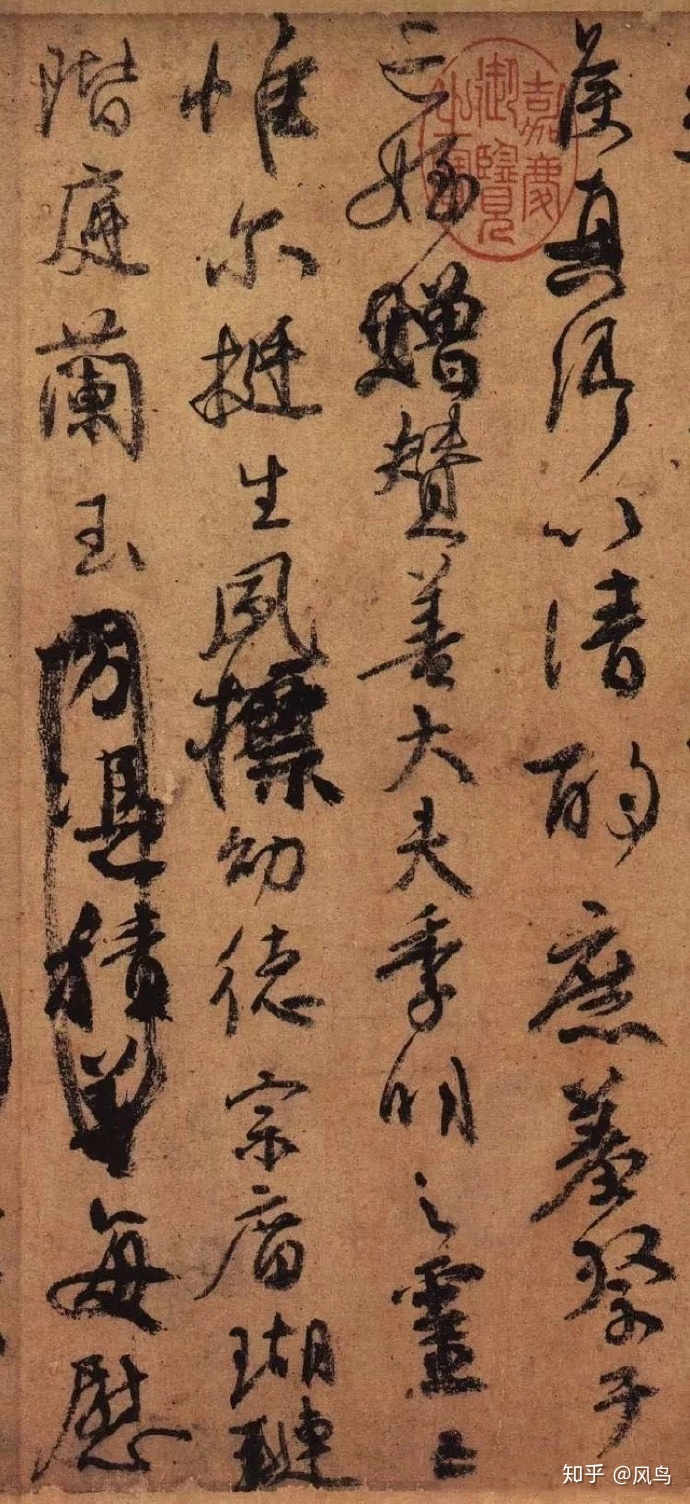 侯真卿以清酌庶羞祭于
亡姪贈贊善大夫季明之靈曰
惟尔挺生夙標幼德宗廟瑚璉
階庭蘭玉方憑積善每慰
嘉慶御覽之寶
知乎 @风鸟